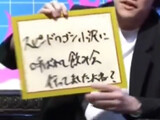 スピードワゴン小沢に
呼ばれて飲み会
行ってましたよね？